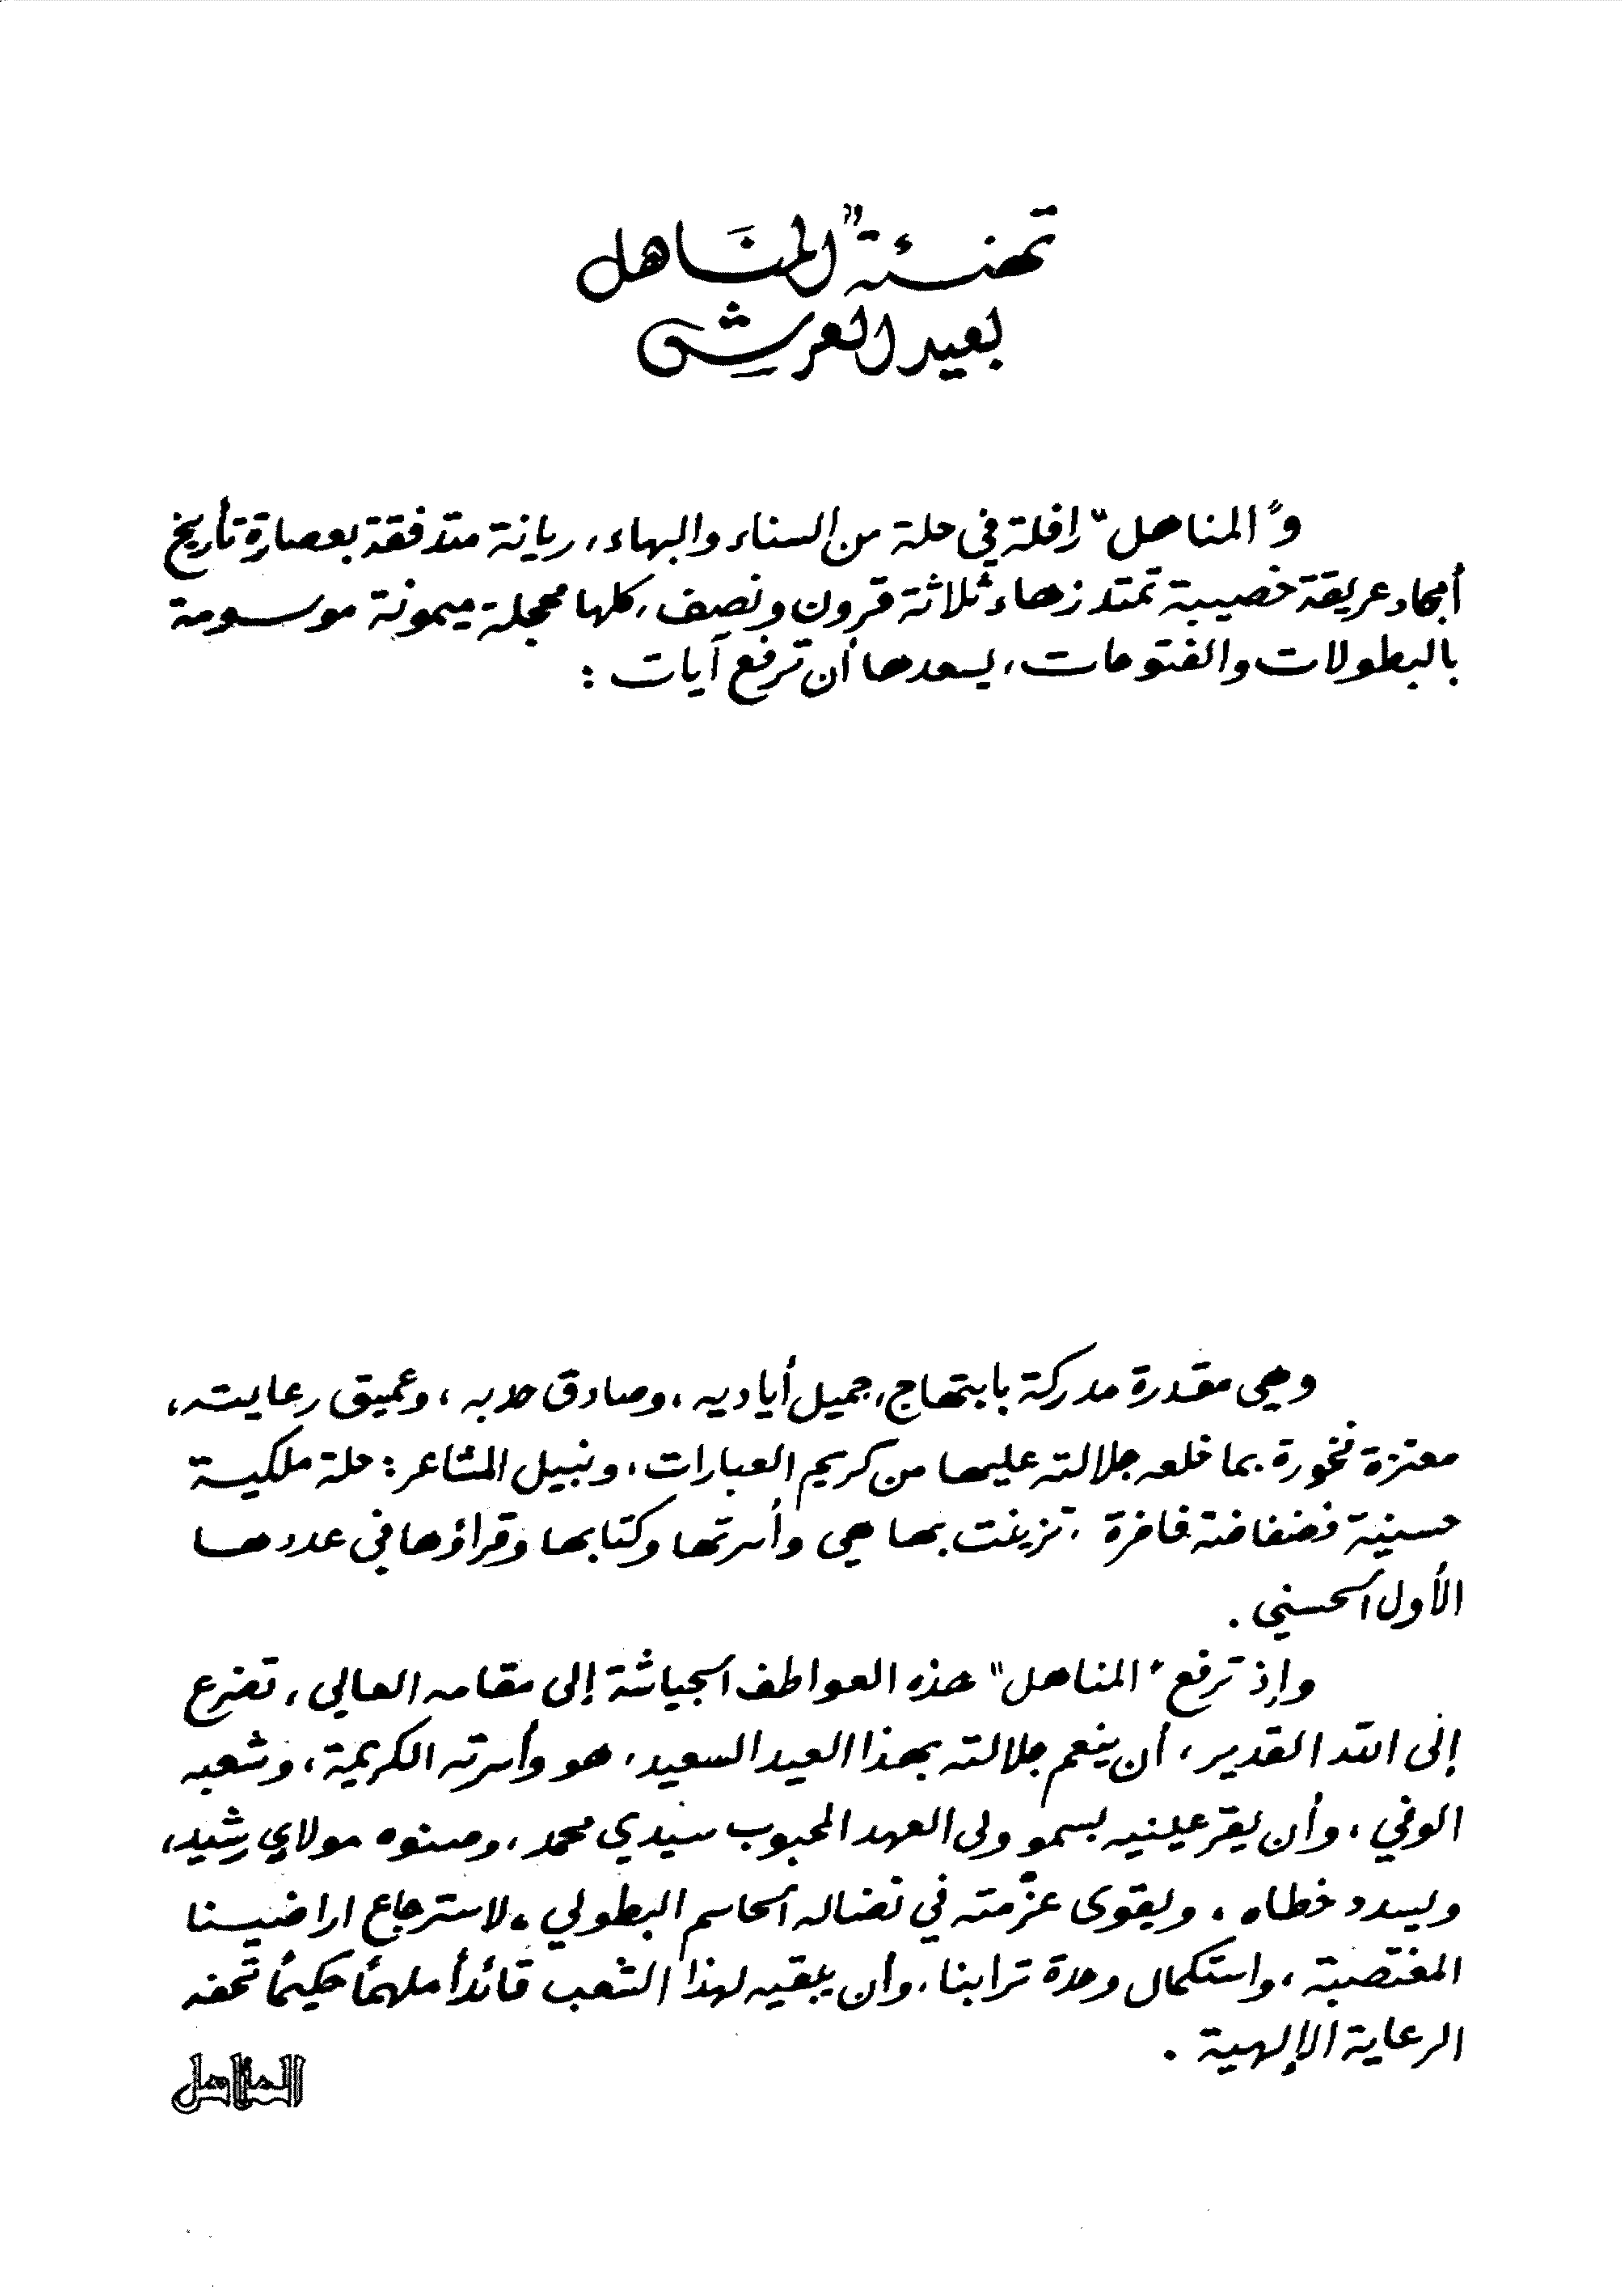 تهنئة "المناهل
بعيد العرش
و"المناهل" رافلة في حلة من السناء والبهاء، ريانة متدفقة بعصارة تأريخ
أمجاد عريقة خصيبة تمتد زهاء ثلاثة قرون ونصف، كلها محجلة ميمونة موسومة
بالبطولات والفتوحات، يسعدها أن ترفع آيات :
وهي مقدرة مدركة بابتهاج، جميل أياديه، وصادق حدبه، وعميق رعايته،
معتزة فخورة بما خلعه جلالته عليها من كريم العبارات، ونبيل المشاعر: حلة ملكية
حسنية فضفاضة فاخرة، تزينت بها هي وأسرتها وكتابها وقراؤها في عددها
الأول الحسني.
وإذ ترفع "المناهل" هذه العواطف الجياشة إلى مقامه العالي، تضرع
إلى الله القدير، أن ينعم جلالته بهذا العيد السعيد، هو وأسرته الكريمة، وشعبه
الوفي، وأن يقر عينيه بسمو ولي العهد المحبوب سيدي محمد، وصنوه مولاي رشيد،
ويسدد خطاه، ويقوى عزمته في نضاله الحاسم البطولي، لاسترجاع اراضينا
المغتصبة، واستكمال وحدة ترابنا، وأن يبقيه لهذا الشعب قائداً ملهماً حكيماً تحفه
الرعاية الإلهية.
المناهل